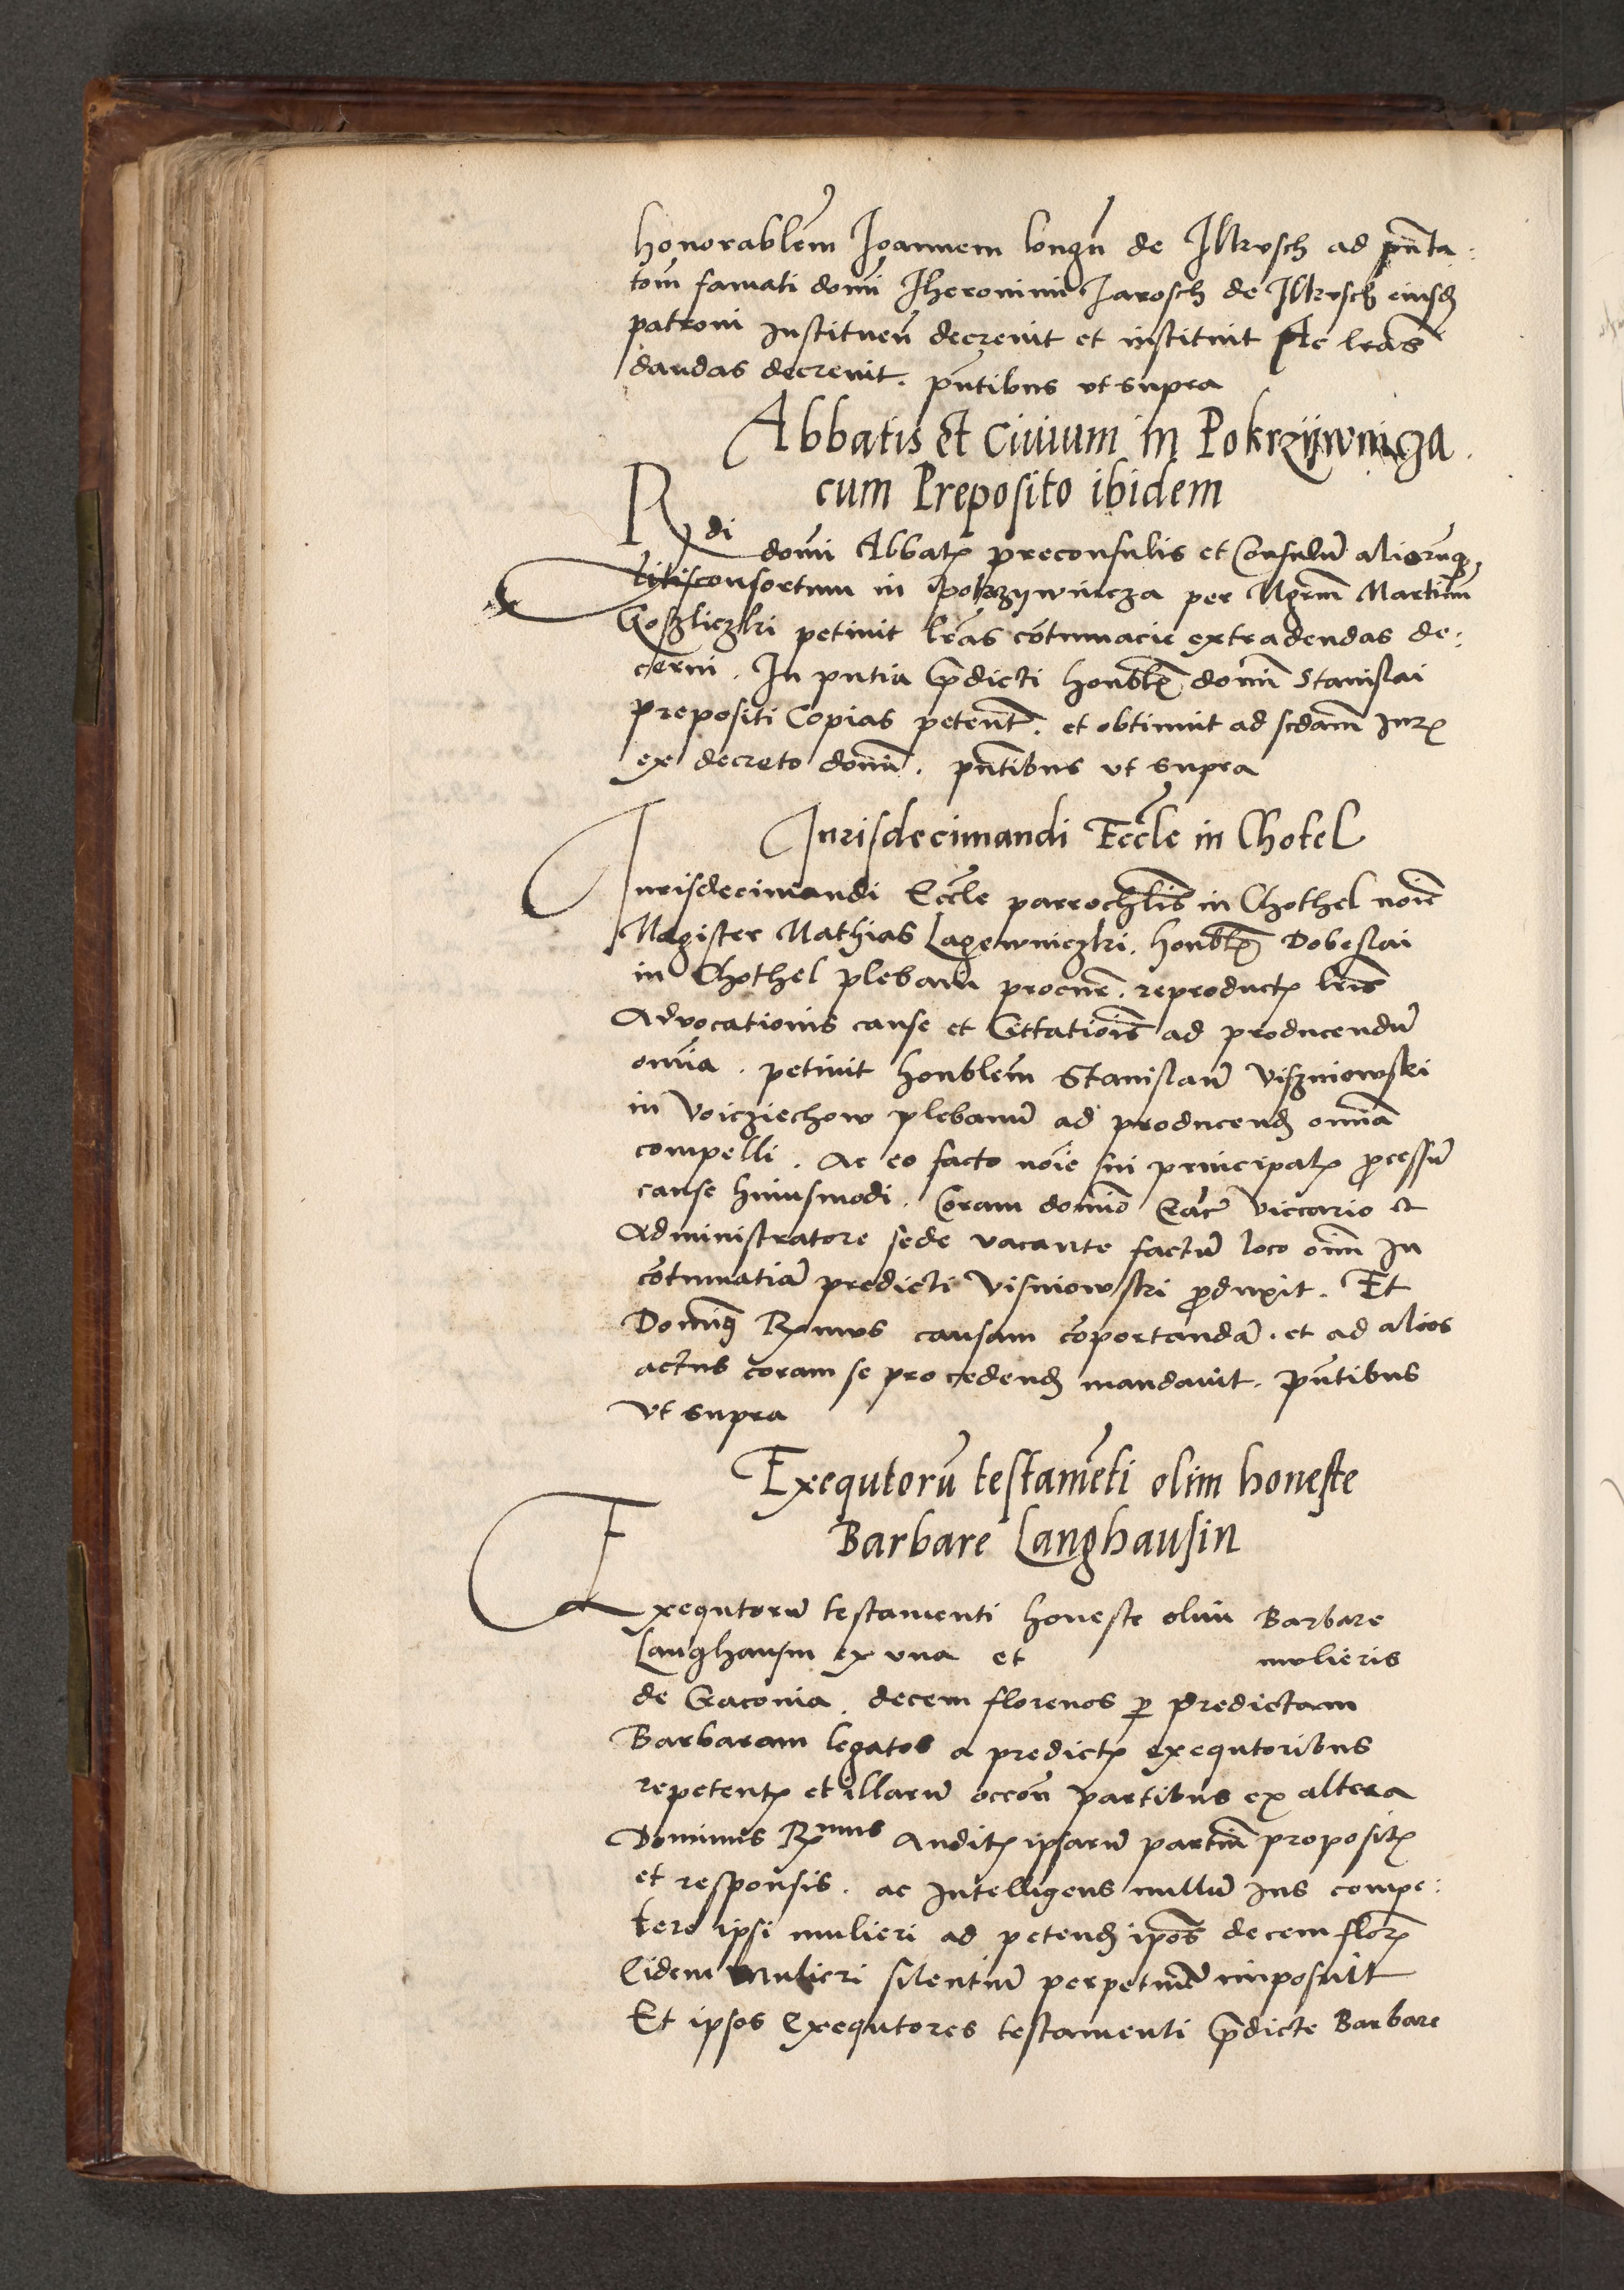 honorablem̄ Joannem longū de Ilkusch ad pn̄ta:
tom̄ famati domī Iheronimi Jarosch de Ilkusch eiusd
patroni instituen̄ decrevit et instituit Ac lr̄as
dandas decrevit. pn̄tibus ut supra
Abbatis et Civium in Pokrzÿwnicza
cum Preposito ibidem
Rdi domī Abbatꝭ preconsulis et Consulū aliorūqꝫ
litisconsortum in Pokrzywnicza per Mgrm̄ Martinū
Goszliczki petivit lr̄as cōtumacie extradendas de:
cerni. In pn̄tia p̄dicti honblꝭ domī Stanislai
prepositi Copias petent̄. et obtinuit ad scdam̄ Jurꝭ
ex decreto domī. pn̄tibus ut supra
Jurisdecimandi Eccl̄e in Chotel
Jurisdecimandi Eccl̄e parrochl̄is in Chothel noīe
Magister Mathias Lagewniczki. honblꝭ Dobeslai
in Chothel plebani procur̄. reproductꝭ lr̄is
Advocationis cause et Cittatiois̄ ad producendū
omīa. petivit honblem̄ Stanislaū Viszniowski
in Voicziechow plebanū ad producend omīa
compelli. Ac eo facto noīe sui principalꝭ p̄cessū
cause huiusmodi. Coram domīo Cāc Viccario et
Administratore sede vacante factū loco oīm In
cōtumatiā predicti Visniowski p̄duxit. Et
Dominꝰ Rxmus causam cōportandā. et ad alios
actus coram se procedend mandavit. pn̄tibus
ut supra
Exequtorū testamēti olim honeste
Barbare Langhausin
Exequtorū testamenti honeste olim Barbare
Langhausin ex una et mulieris
de Cracovia. decem florenos ꝑ predictam
Barbaram legatos a predictꝭ exequtoribus
repetentꝭ et illarū occōn̄ partibus ex altera
Dominus Rxmus Auditꝭ ipsarū partiū propositꝭ
et responsis. ac Intelligens nullū ius compe:
tere ipsi mulieri ad petend ipos̄ decem florꝭ
Eidem Mulieri silentiū perpetuū imposuit
Et ipsos Exequtores testamenti p̄dicte Barbare